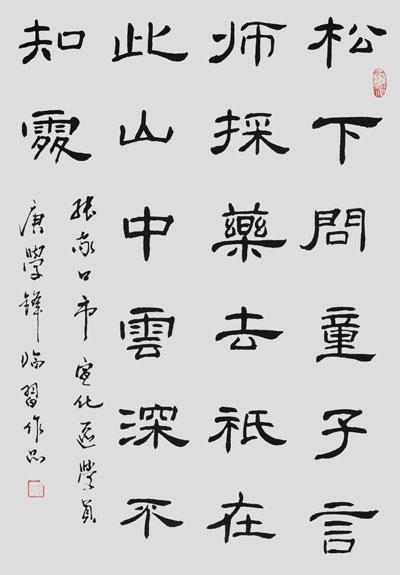 松下問童子言
师採藥去祇在
此山中雲深不
知處
張家口市宣化區學員
唐學鋒臨習作品